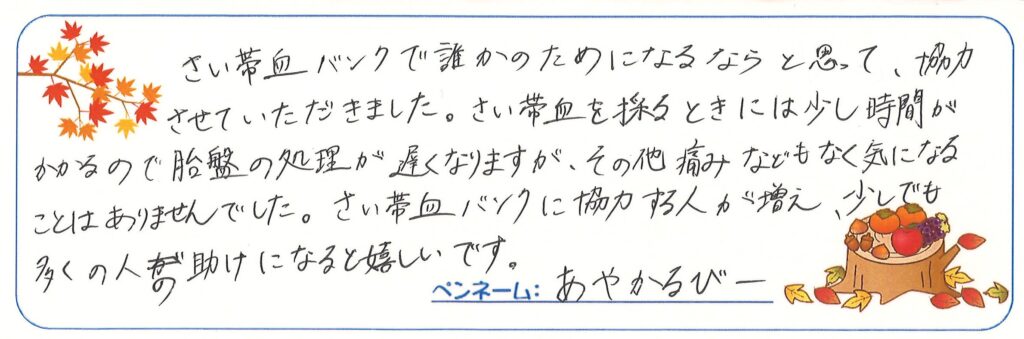 さい帯血バンクで誰かのためになるならと思って、協力
させていただきました。さい帯血を採るときには少し時間が
かかるので胎盤の処理が遅くなりますが、その他痛みなどもなく気になる
ことはありませんでした。さい帯血バンクに協力する人が増え、少しでも
多くの人の助けになると嬉しいです。
ペンネーム: あやかるびー